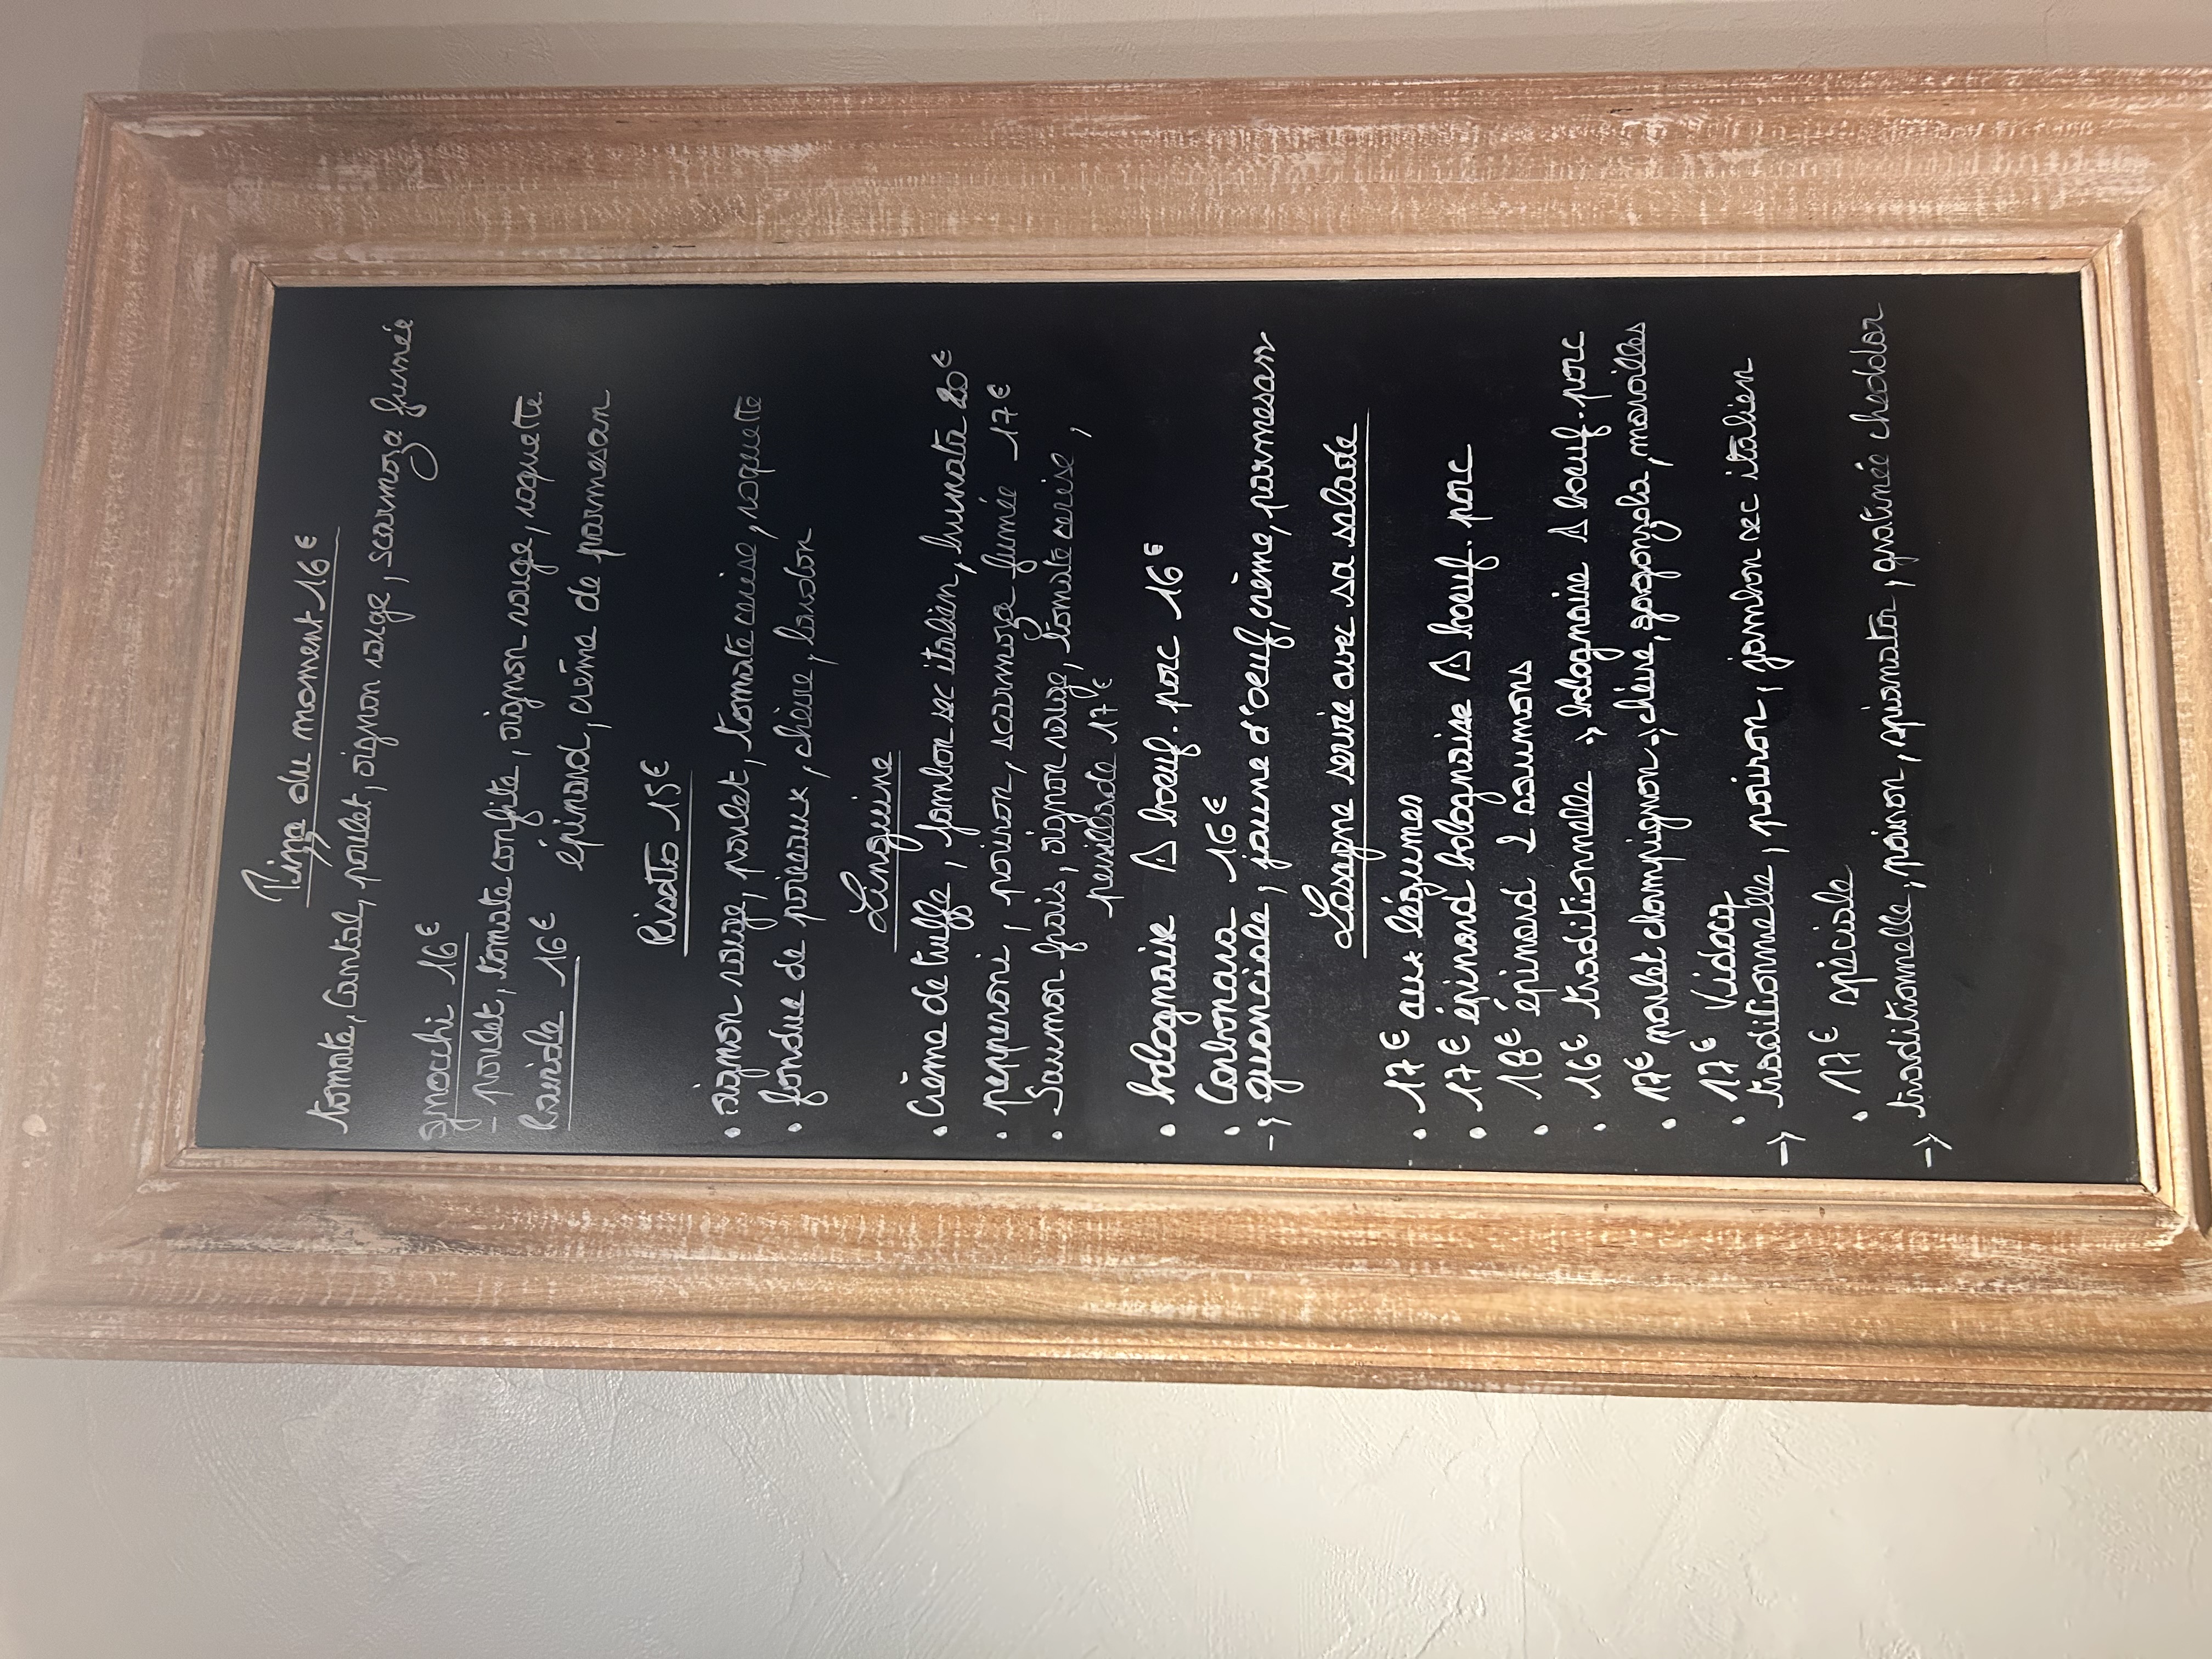 Pizza du moment 16€
tomate, Cantal, poulet, oignon rouge, scarmoza fumée
gnocchi 16€
- poulet, tomate confite, oignon rouge, roquette
16€ épinard, crème de parmesan
Risotto 15€
• oignon rouge, poulet, tomate cerise, roquette
• fondue de poireaux, chèvre, lardon
Linguine
• Crème de truffe, jambon sec italien, burrata 20€
• pepperoni, poivron, scarmoza fumée 17€
• Saumon frais, oignon rouge, tomate cerise,
persillade 17€
• bolognaise ⚠ boeuf. porc 16€
• Carbonara 16€
-> guanciale, jaune d'oeuf, crème, parmesan
Lasagne servie avec sa salade
• 17€ aux légumes
• 17€ épinard bolognaise ⚠ boeuf. porc
• 18€ épinard 2 saumons
• 16€ traditionnelle -> bolognaise ⚠ boeuf. porc
• 17€ poulet champignon -> chèvre, gorgonzola, maroilles
• 17€ Vidocq
-> traditionnelle, poivron, jambon sec italien
• 17€ spéciale
-> traditionnelle, poivron, spianata, gratinée cheddar